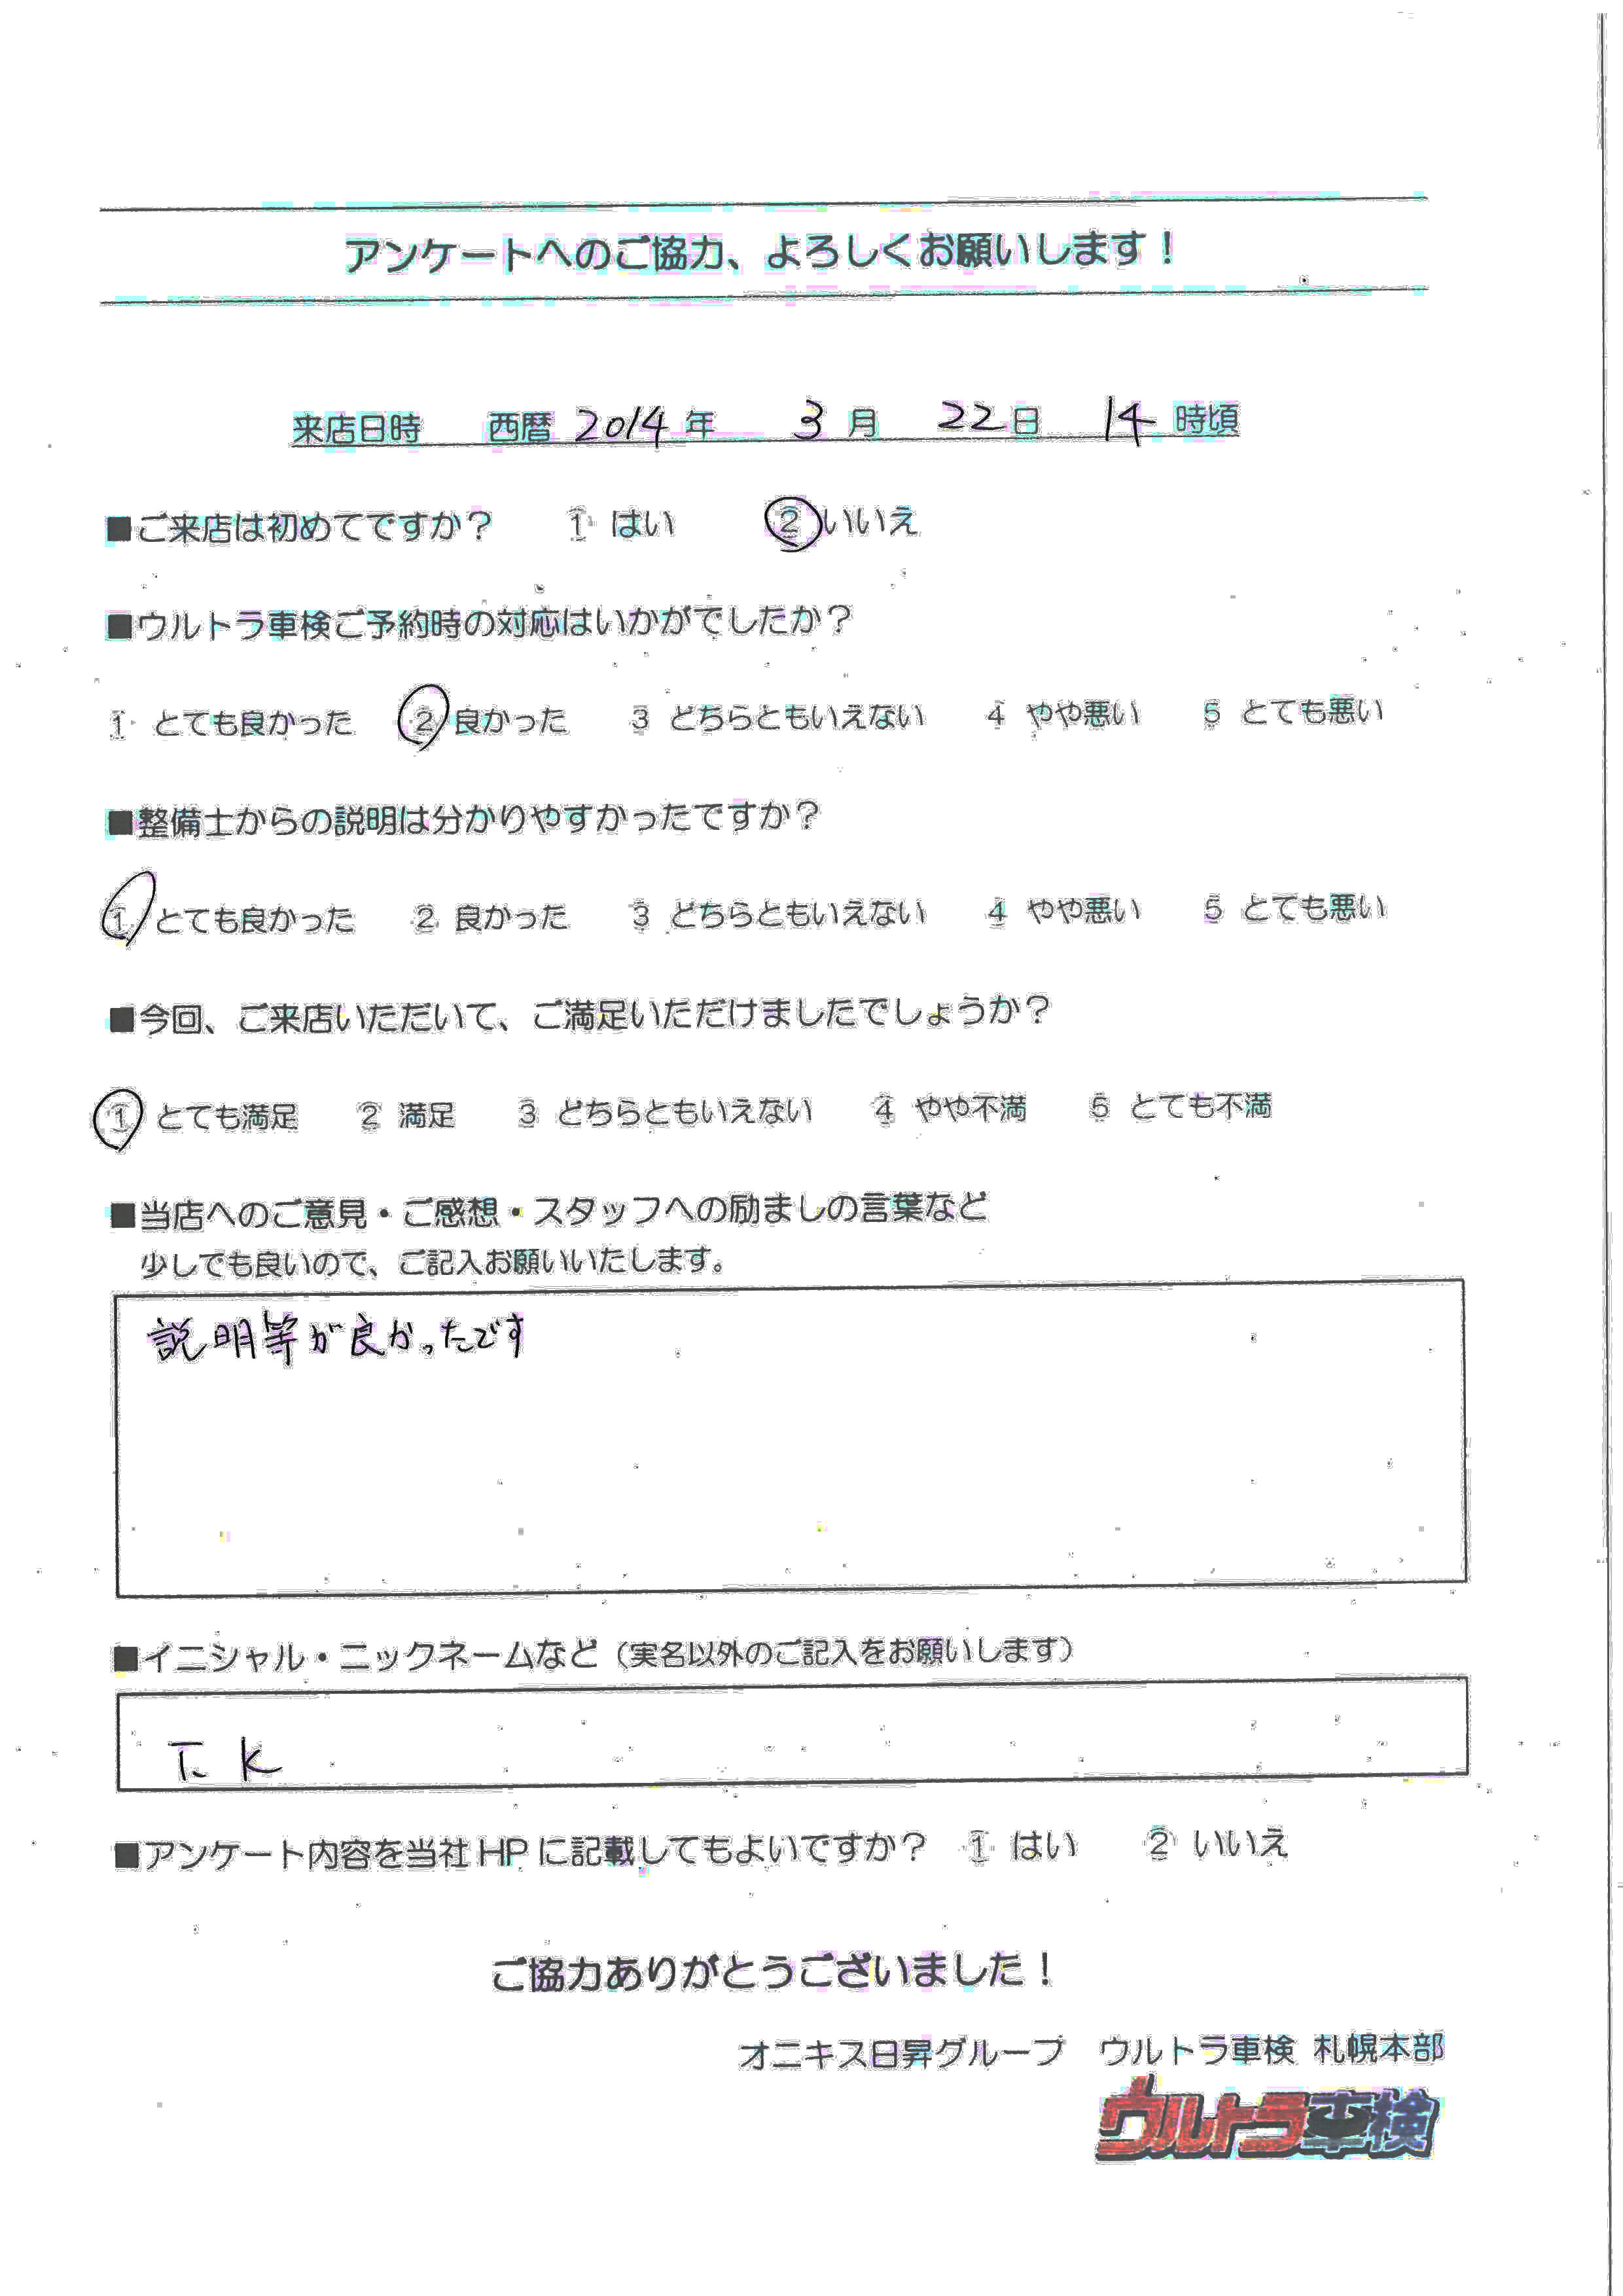 アンケートへのご協力、よろしくお願いします！
来店日時　西暦 2014 年　3 月　22 日　14 時頃
■ご来店は初めてですか？　1 はい　② いいえ
■ウルトラ車検ご予約時の対応はいかがでしたか？
1 とても良かった　② 良かった　3 どちらともいえない　4 やや悪い　5 とても悪い
■整備士からの説明は分かりやすかったですか？
① とても良かった　2 良かった　3 どちらともいえない　4 やや悪い　5 とても悪い
■今回、ご来店いただいて、ご満足いただけましたでしょうか？
① とても満足　2 満足　3 どちらともいえない　4 やや不満　5 とても不満
■当店へのご意見・ご感想・スタッフへの励ましの言葉など
少しでも良いので、ご記入お願いいたします。
説明等が良かったです
■イニシャル・ニックネームなど（実名以外のご記入をお願いします）
T. K
■アンケート内容を当社 HP に記載してもよいですか？　1 はい　2 いいえ
ご協力ありがとうございました！
オニキス日昇グループ　ウルトラ車検 札幌本部
ウルトラ車検